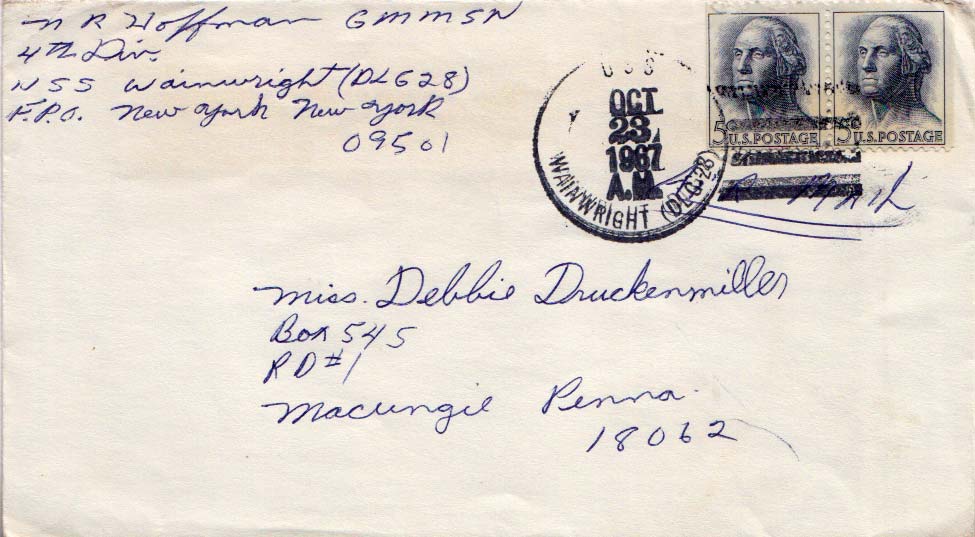 N R Hoffman GMMSN
4th Div.
USS Wainwright (DLG28)
F.P.O. New York New York
09501
USS
OCT
23
1967
A.M.
WAINWRIGHT (DLG-28)
5¢ U.S. POSTAGE
5¢ U.S. POSTAGE
Air Mail
Miss. Debbie Druckenmiller
Box 545
RD#1
Macungie Penna.
18062